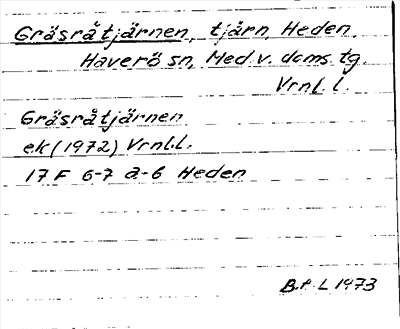 Gräsråtjärnen, tjärn, Heden,
Haverö sn, Med.v. doms tg.
Vrml. l.
Gräsråtjärnen
ek (1972) Vrml.l.
17 F 6-7 a-6 Heden
B.t. L 1973